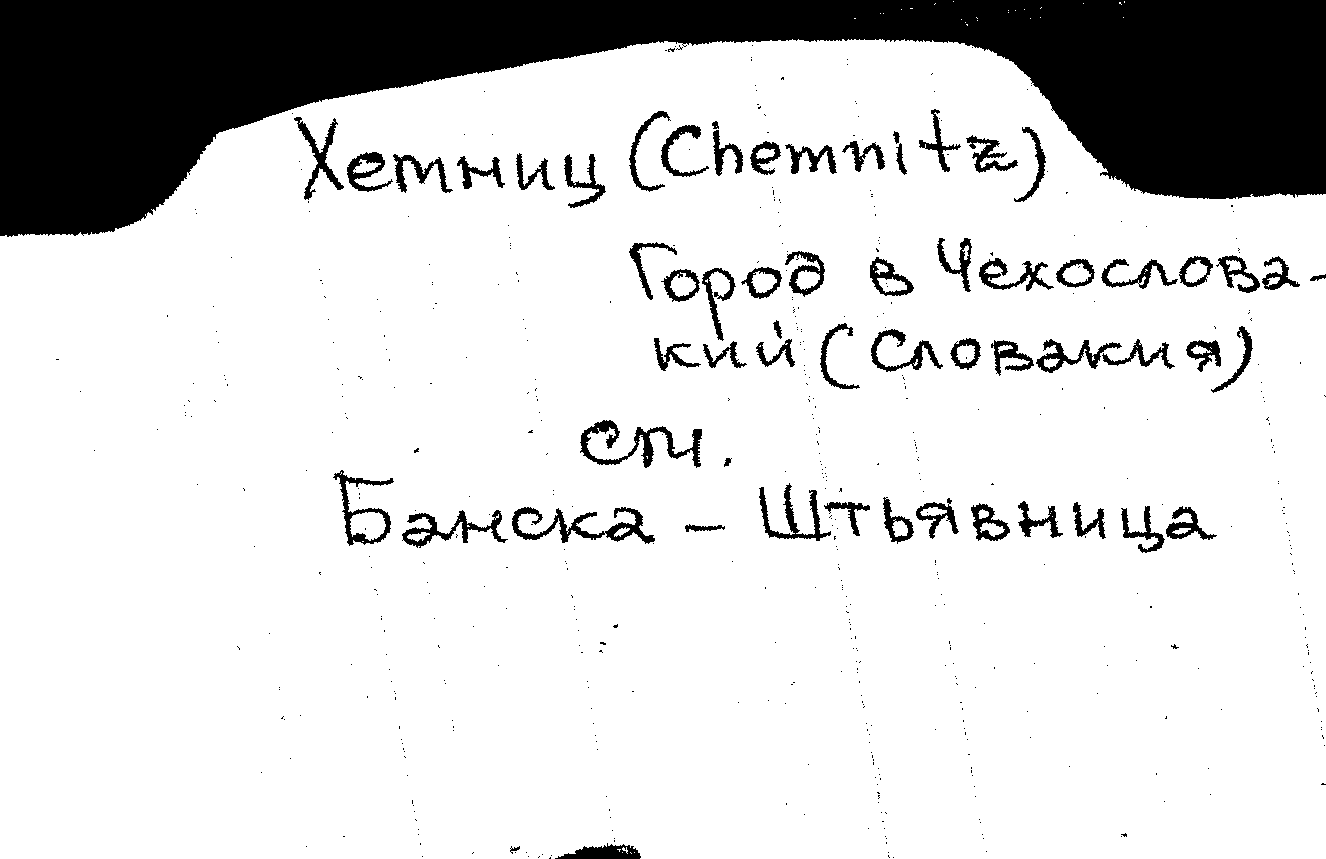 Хемниц (Chemnitz)
Город в Чехослова-
кий (Словакия)
см.
Банска - Штьявница